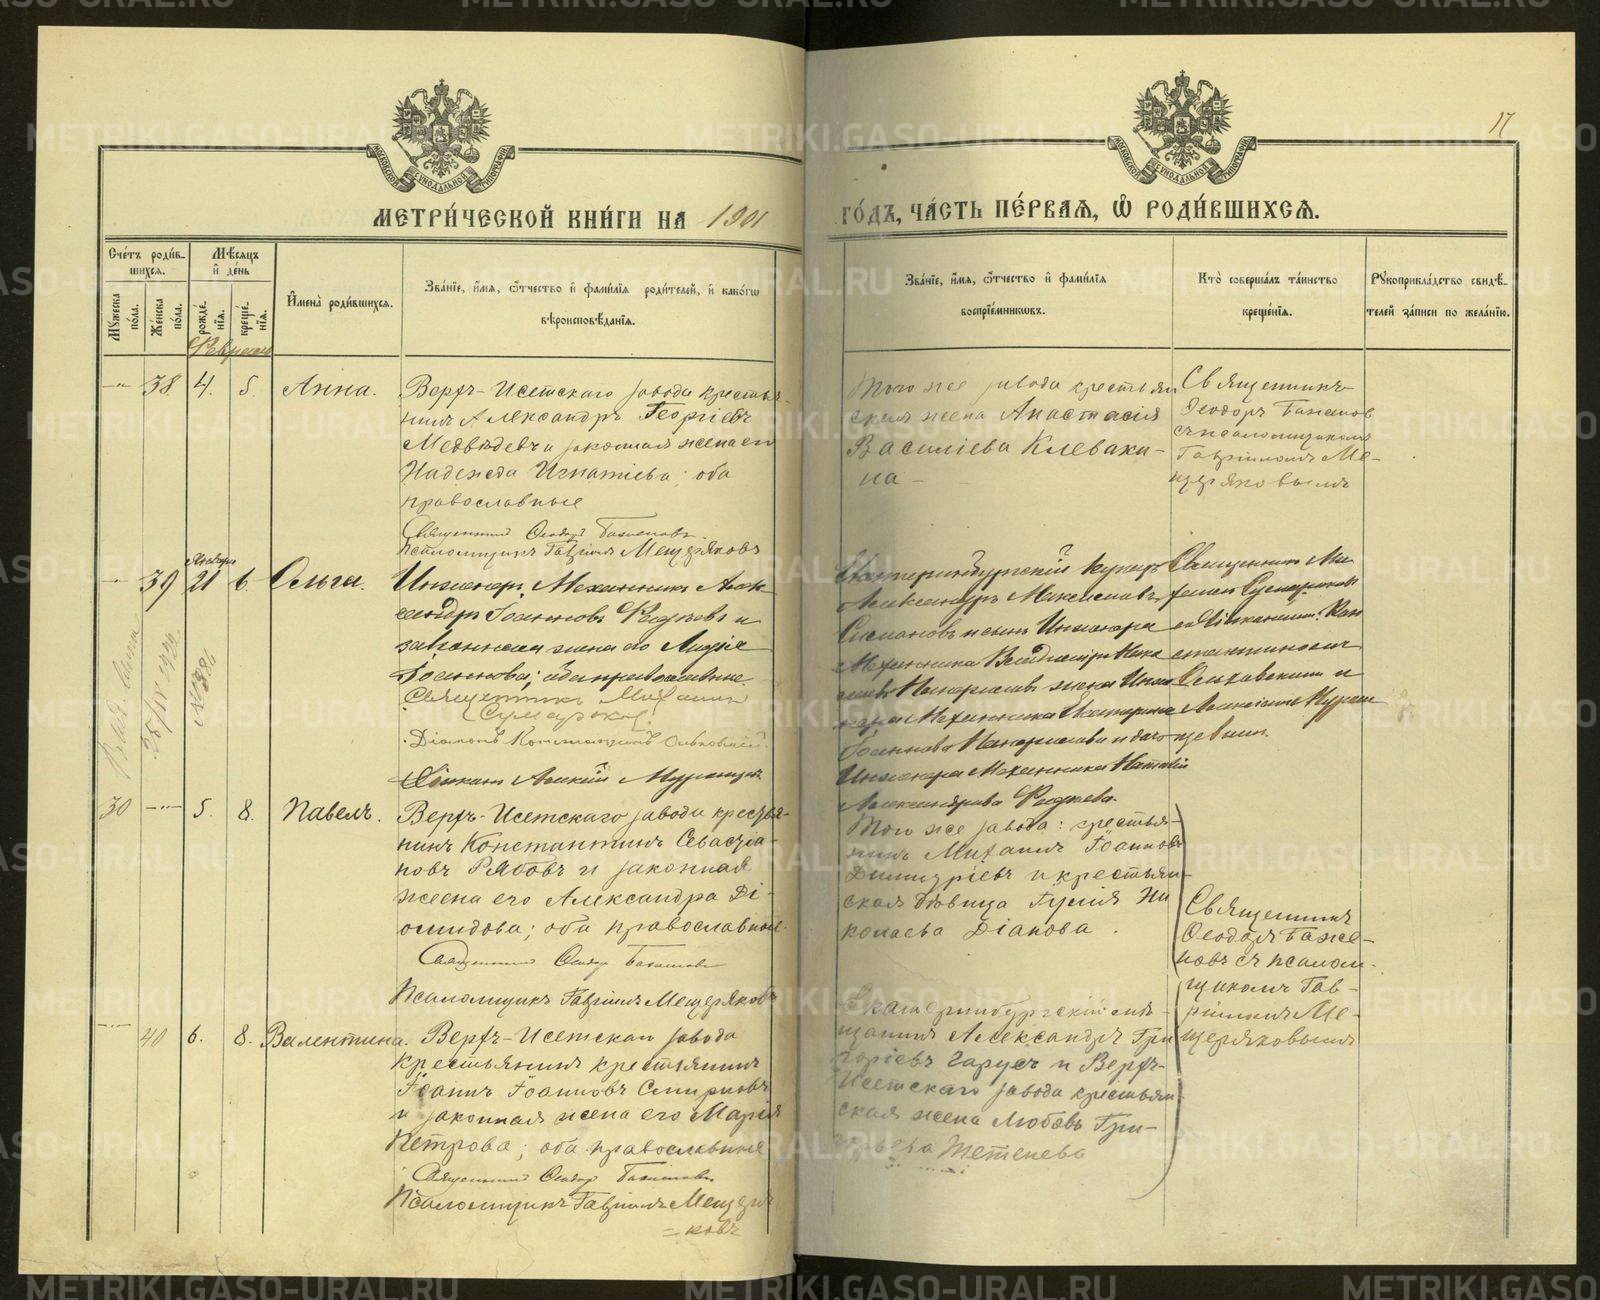 17
МЕТРИ́ЧЕСКОЙ КНИ́ГИ НА 1901
ГО́ДЪ, ЧА́СТЬ ПЕ́РВАЯ, Ѿ РОДИ́ВШИХСЯ.
Сче́тъ роди́в-
шихся.
Мꙋ́жеска по́ла.
Же́нска по́ла.
Мѣ́сяцъ и де́нь
рожде́нїя.
креще́нїя.
И́мена̀ роди́вшихся.
Зва́нїе, и́мя, ѻ́тчество и фами́лїя роди́телей, и како́гѡ
вѣроисповѣ́данїя.
Зва́нїе, и́мя, ѻ́тчество и фами́лїя
воспрїе́мниковъ.
Кто̀ соверша́лъ та́инство
креще́нїя.
Рꙋкоприкла́дство свидѣ́-
телей за́писи по жела́нїю.
Февраля
38 4. 5. Анна.
Верхъ-Исетскаго завода крестья-
нинъ Александръ Георгіевъ
Медвѣдевъ и законная жена его
Надежда Игнатіева; оба
православные
Священникъ Ѳеодоръ Баженовъ.
Псаломщикъ Гавріилъ Мещеряковъ
Того же завода крестьян
ская жена Анастасія
Василіева Клеваки-
на -
Священникъ
Ѳеодоръ Баженов
съ псаломщикомъ
Гавріиломъ Ме-
щеряковымъ
Января
39 21 6. Ольга.
Инженеръ Механникъ Алек
сандръ Іоанновъ Фадѣевъ и
законная жена его Лидія
Іоаннова; оба православные.
Священникъ Михаилъ
Сумароковъ.
Діаконъ Константинъ
Діаконъ Алексій
Екатеринбургскій купецъ
Александръ Максимовъ
Симановъ и сынъ Инженера
Механника Владиміръ
жена Инже
нера Механника Екатерина
Іоаннова и дочь
Инженера Механника Наталія
Александрова Фадѣева.
Священникъ Ми
хаилъ Сумароков
съ Діакономъ Кон
стантиномъ
и
Алексіемъ
25/IV 1920
№ 386
30 5. 8. Павелъ.
Верхъ-Исетскаго завода крестья-
нинъ Константинъ Севастіа-
новъ Рябовъ и законная
жена его Александра Ді-
омидова; оба православные.
Священникъ Ѳеодоръ Баженовъ
Псаломщикъ Гавріилъ Мещеряковъ
Того же завода: крестья-
нинъ Михаилъ Іоанновъ
Димитріевъ и крестьян-
ская дѣвица Ни
колаева Діакова.
Священникъ
Ѳеодоръ Баже-
новъ съ псалом-
щикомъ Гав-
ріиломъ Ме-
щеряковымъ
40 6. 8. Валентина.
Верхъ-Исетскаго завода
крестьянинъ крестьянинъ
Іоаннъ Іоанновъ Смирновъ
и законная жена его Марія
Петрова; оба православные
Священникъ Ѳеодоръ Баженовъ
Псаломщикъ Гавріилъ Мещеря
=ковъ
Екатеринбургскій мѣ-
щанинъ Александръ Гри
горіевъ Гарусъ и Верхъ-
Исетскаго завода крестьян
ская жена Любовь Гри-
горьева Тетенева
METRIKI.GASO-URAL.RU